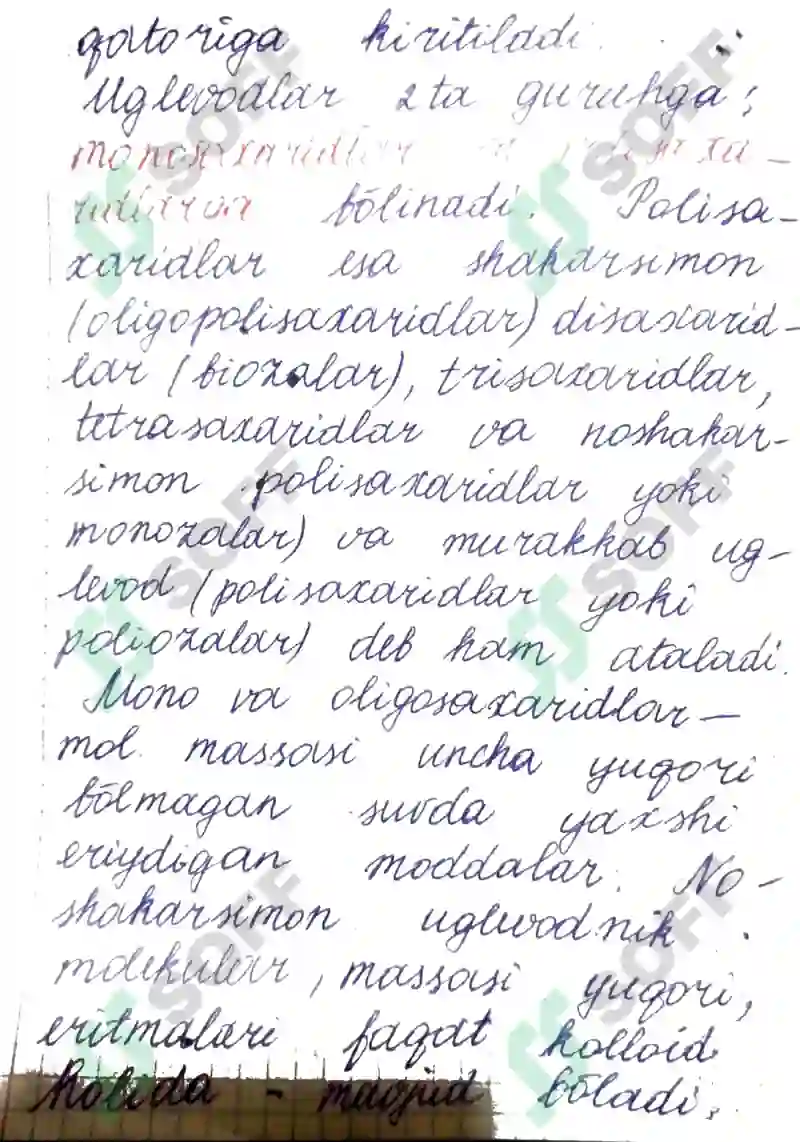 qatoriga kiritiladi.
Uglevodlar 2 ta guruhga;
monosaxaridlar
bōlinadi. Polisa-
xaridlar esa shakarsimon
(oligopolisaxaridlar) disaxarid-
lar (biozalar), trisaxaridlar,
tetrasaxaridlar va noshakar-
simon polisaxaridlar yoki
monozalar) va murakkab ug-
levod (polisaxaridlar yoki
poliozalar) deb ham ataladi.
Mono va oligosaxaridlar —
mol. massasi uncha yuqori
bōlmagan suvda yaxshi
eriydigan moddalar. No-
shakarsimon uglevodnik
molekular, massasi yuqori,
eritmalari faqat kolloid
holida - mavjud bōladi.
SOFF
SOFF
SOFF
SOFF
SOFF
SOFF